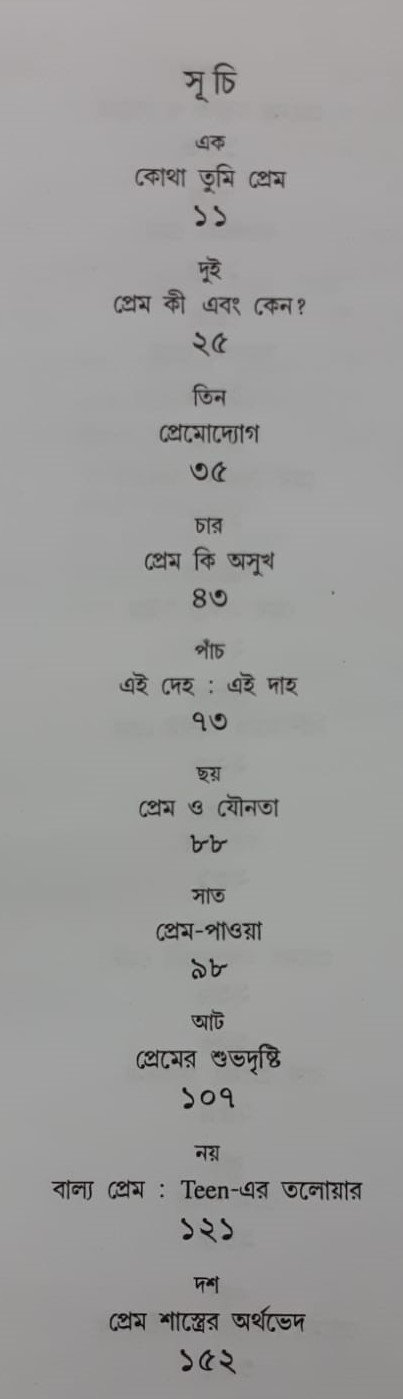 সূচি
এক
কোথা তুমি প্রেম
১১
দুই
প্রেম কী এবং কেন?
২৫
তিন
প্রেমোদ্যোগ
৩৫
চার
প্রেম কি অসুখ
৪৩
পাঁচ
এই দেহ : এই দাহ
৭৩
ছয়
প্রেম ও যৌনতা
৮৮
সাত
প্রেম-পাওয়া
৯৮
আট
প্রেমের শুভদৃষ্টি
১০৭
নয়
বাল্য প্রেম : Teen-এর তলোয়ার
১২১
দশ
প্রেম শাস্ত্রের অর্থভেদ
১৫২